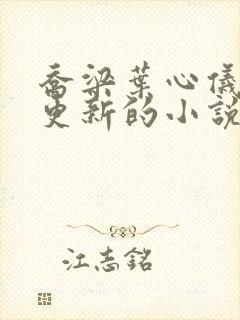 喬梁葉心儀
更新的小說
江志銘